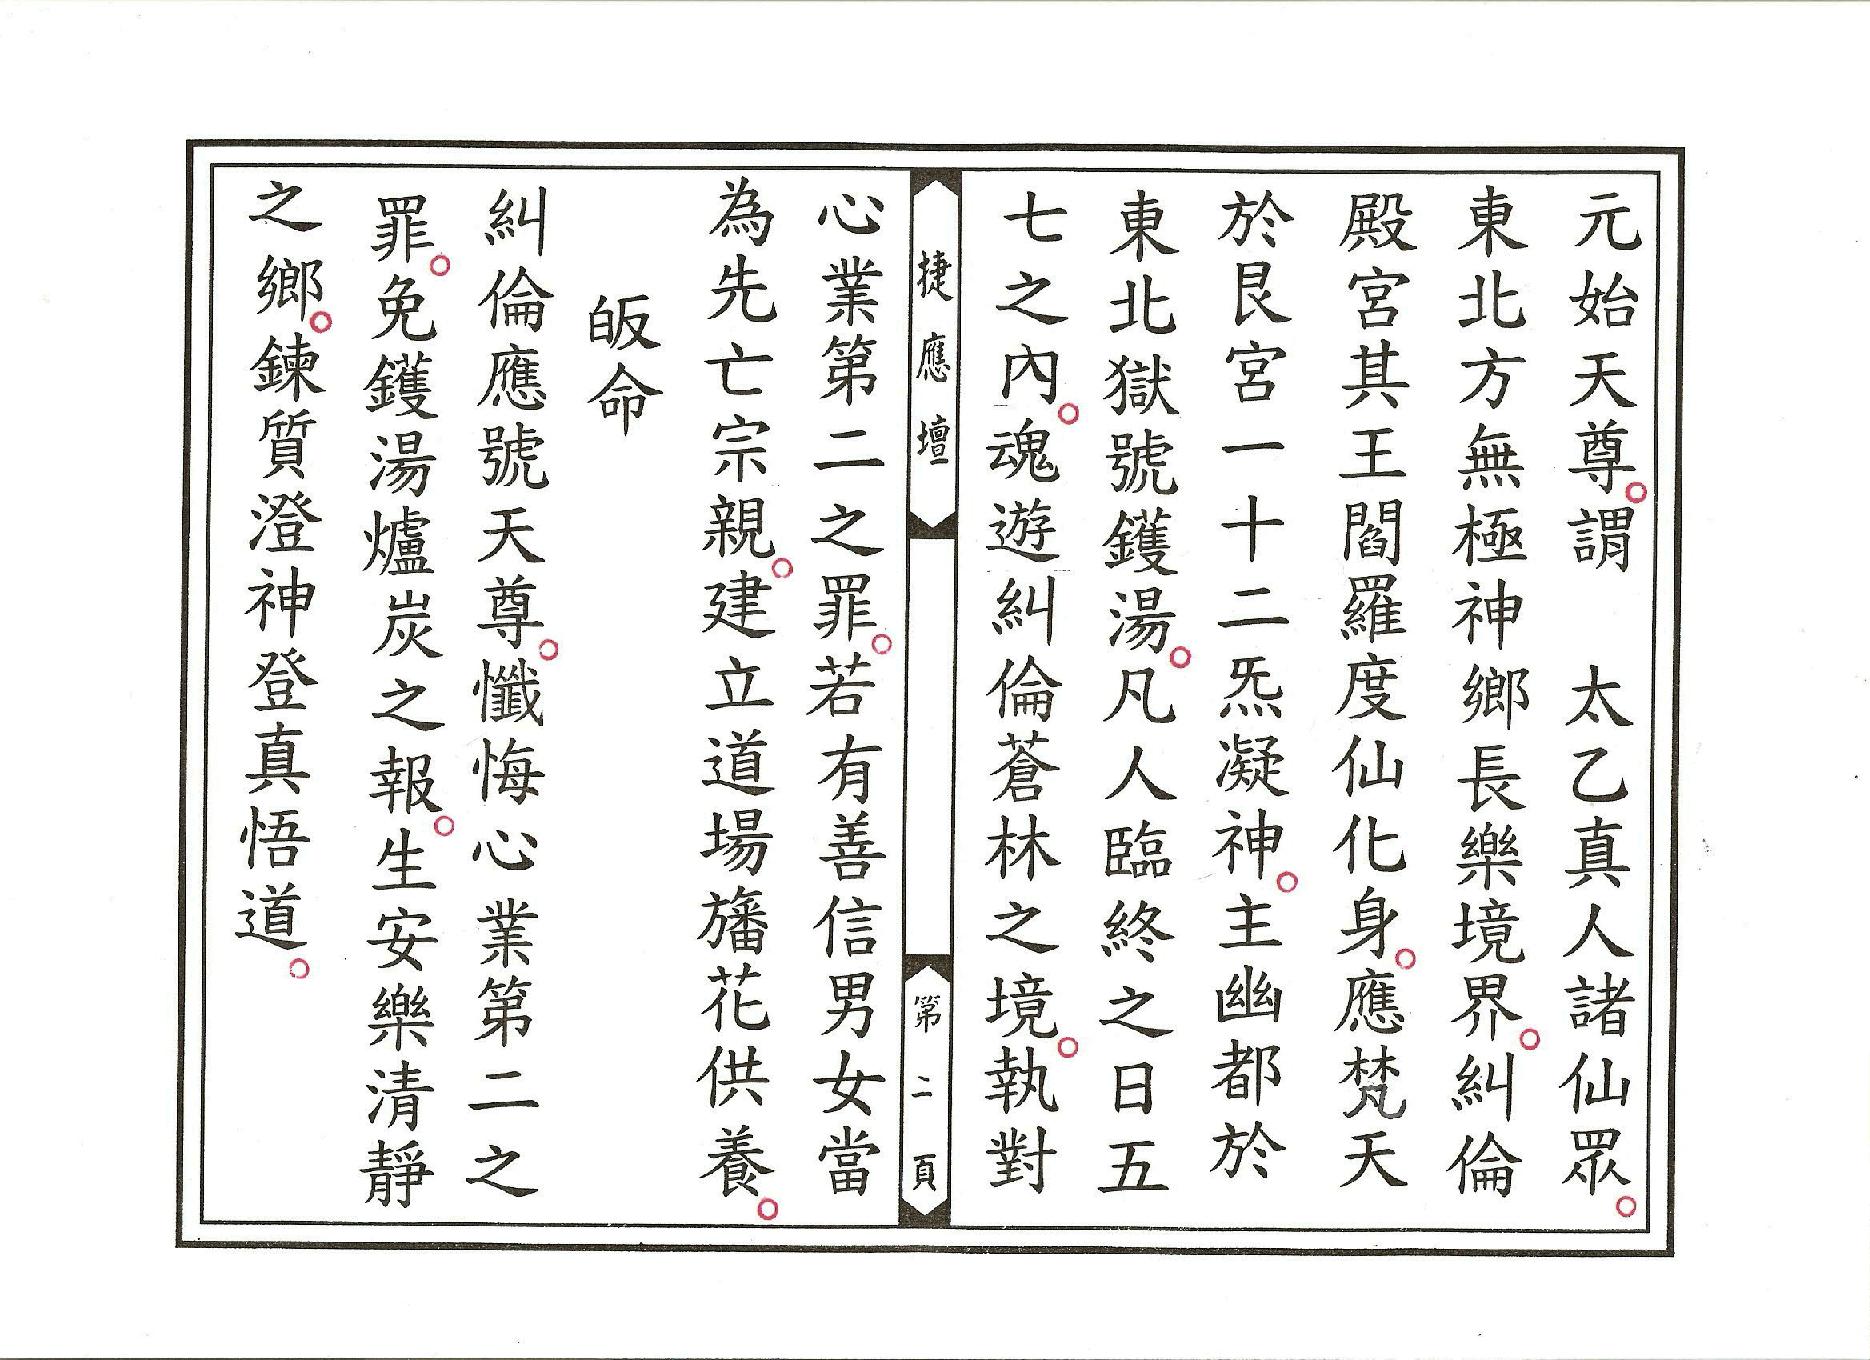 元始天尊。謂　太乙真人諸仙眾。
東北方無極神鄉長樂境界。糾倫
殿宮其王閻羅度仙化身。應梵天
於艮宮一十二炁凝神。主幽都於
東北獄號鑊湯。凡人臨終之日五
七之內。魂遊糾倫蒼林之境。執對
捷應壇
第二頁
心業第二之罪。若有善信男女當
為先亡宗親。建立道場旛花供養。
皈命
糾倫應號天尊。懺悔心業第二之
罪。免鑊湯爐炭之報。生安樂清靜
之鄉。鍊質澄神登真悟道。